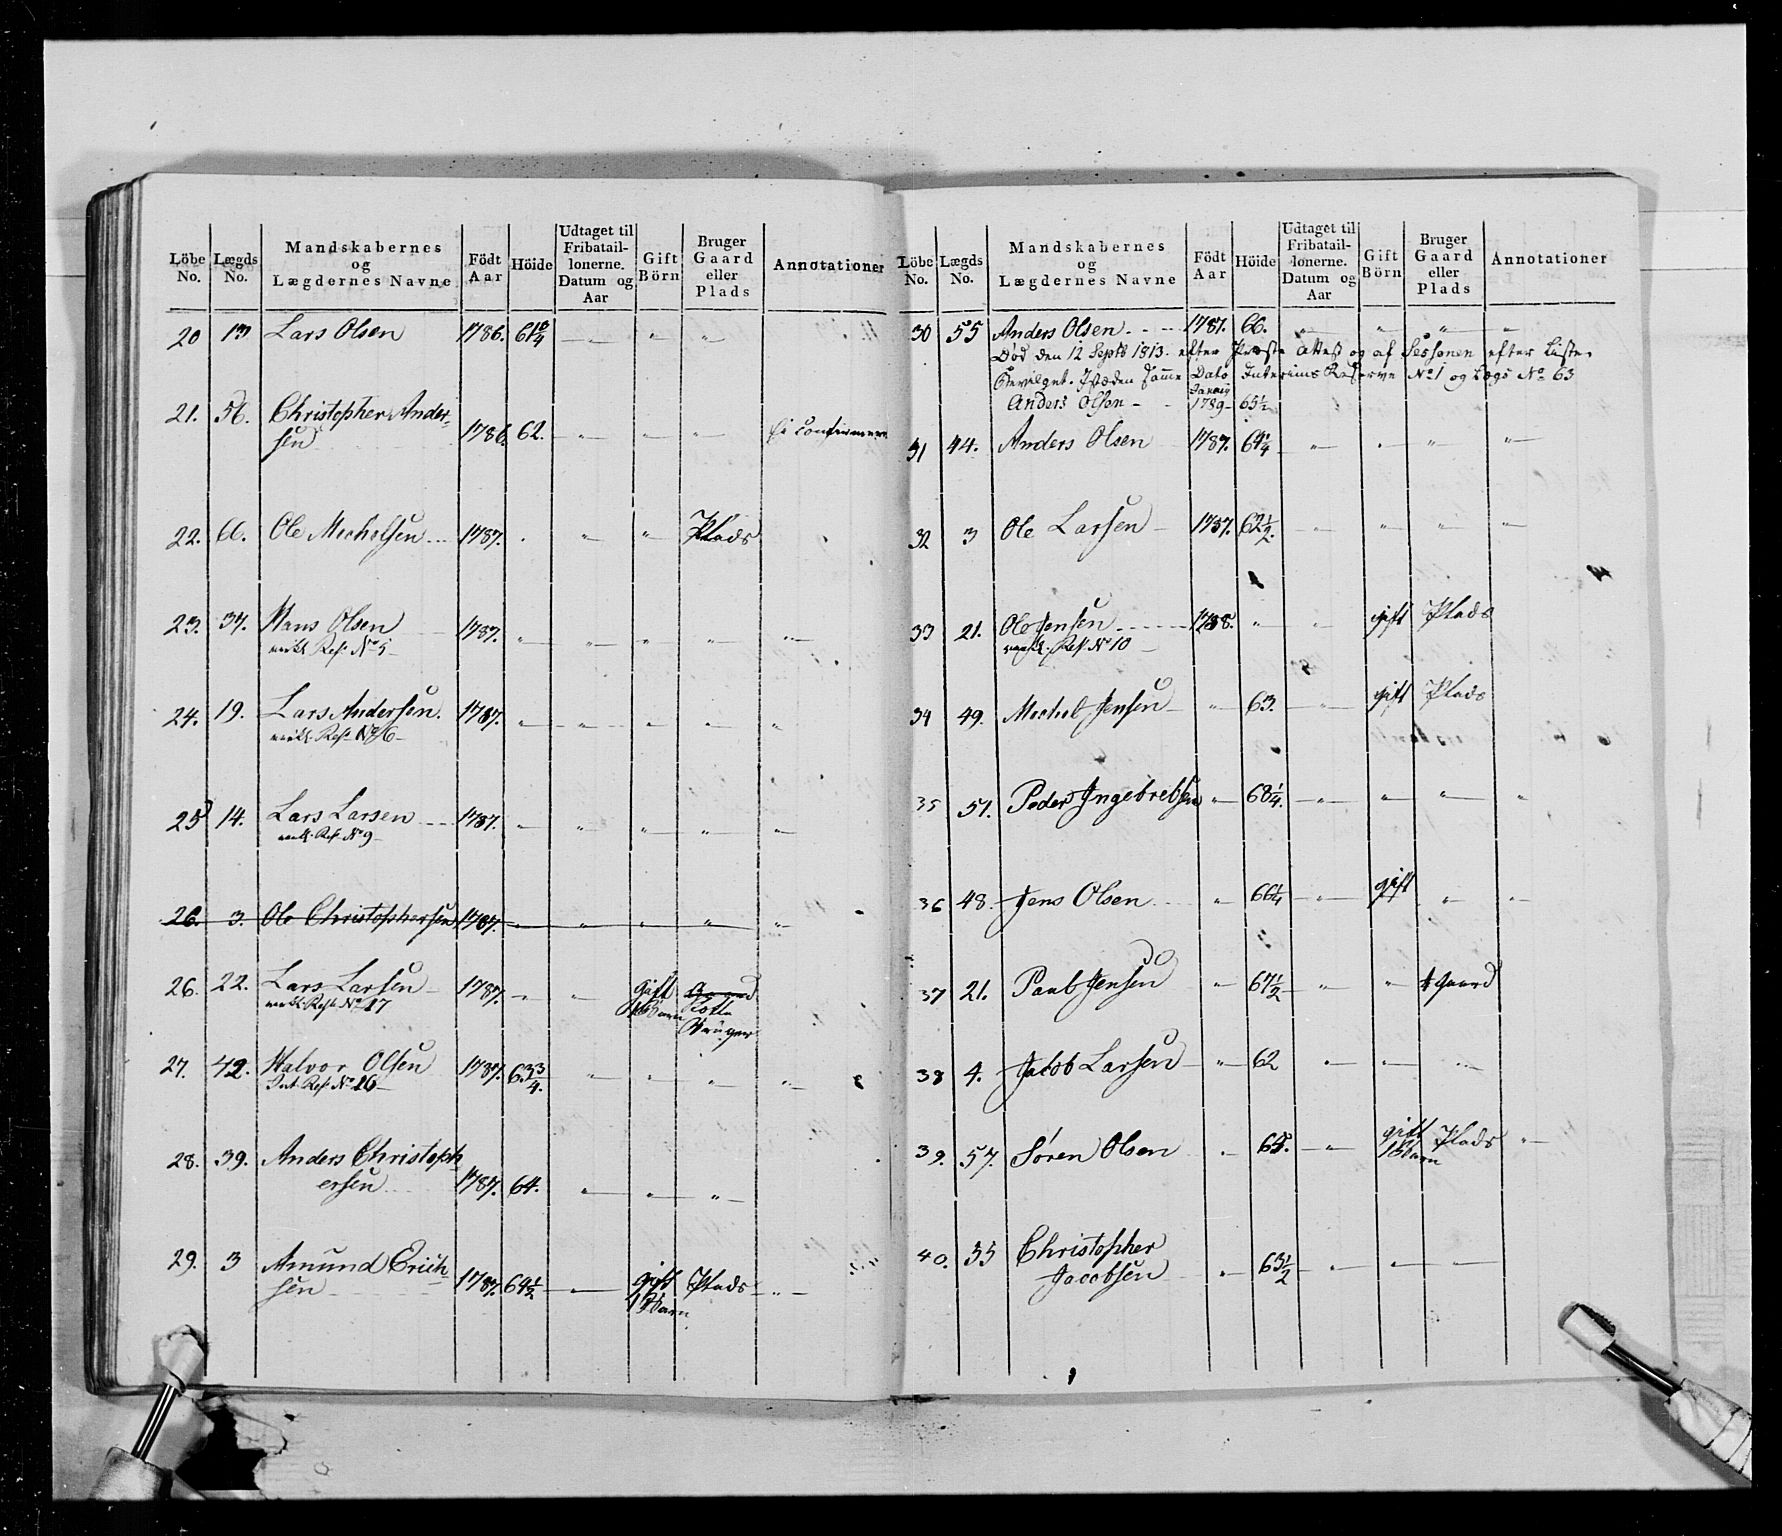 Löbe No. Lægds No. Mandskabernes og Lægdernes Navne Födt Aar Höide Udtaget til Fribatail- lonerne. Datum og Aar Gift Börn Bruger Gaard eller Plads Annotationer
20 13 Lars Olsen 1786. 61 3/4 " " "
21. 56. Christopher Ander-
sen 1786. 62. " " "
22. 66. Ole Mechelsen 1787. " " " Plads
23. 37. Hans Olsen 1787. " " " " "
Res. No 5
24. 19. Lars Andersen. 1787. " " " " "
Res. No 6
25 14. Lars Larsen 1787. " " " " "
Res. No 9
26. 3. Ole Christophersen 1787. " " " " "
26. 22. Lars Larsen 1787. " " gift Gaard
Res. No 17 1 Barn
Bruger
27. 42. Halvor Olsen 1787. 63 3/4. " " " "
Int. Res. No 16
28. 39. Anders Christoph
ersen 1787. 64. " " "
29. 3 Amund Erich-
sen 1787. 64 1/2 " gift Plads "
1 Barn
Löbe No. Lægds No. Mandskabernes og Lægdernes Navne Födt Aar Höide Udtaget til Fribatail- lonerne. Datum og Aar Gift Börn Bruger Gaard eller Plads Annotationer
30 55 Anders Olsen 1787. 66. " " " "
Død den 12 Septb 1813. efter Præste Attest og af Sessionen efter Liste
Bevilget. Istæden Samme Dato Interims Reserve No 1 og Lægs No 63
Anders Olsen 1789 65 1/2
31 44. Anders Olsen 1787. 64 1/4 " " " "
32 3 Ole Larsen 1787. 62 1/2. " " " "
33 21. Ole Jensen 1788. " " gift Plads
Res. No 10
34 49. Mechel Jensen " 63. " gift Plads
35 51. Peder Ingebretsen " 68 1/4. " " " "
36 48. Jens Olsen " 66 1/4 " gift " "
37 21. Paul Jensen " 67 1/2 " " 1/2 Gaard
38 4. Jacob Larsen " 62 " " "
39. 57. Sören Olsen " 65. " gift Plads "
1 Barn
40. 35 Christopher
Jacobsen " 63 1/2 " " "